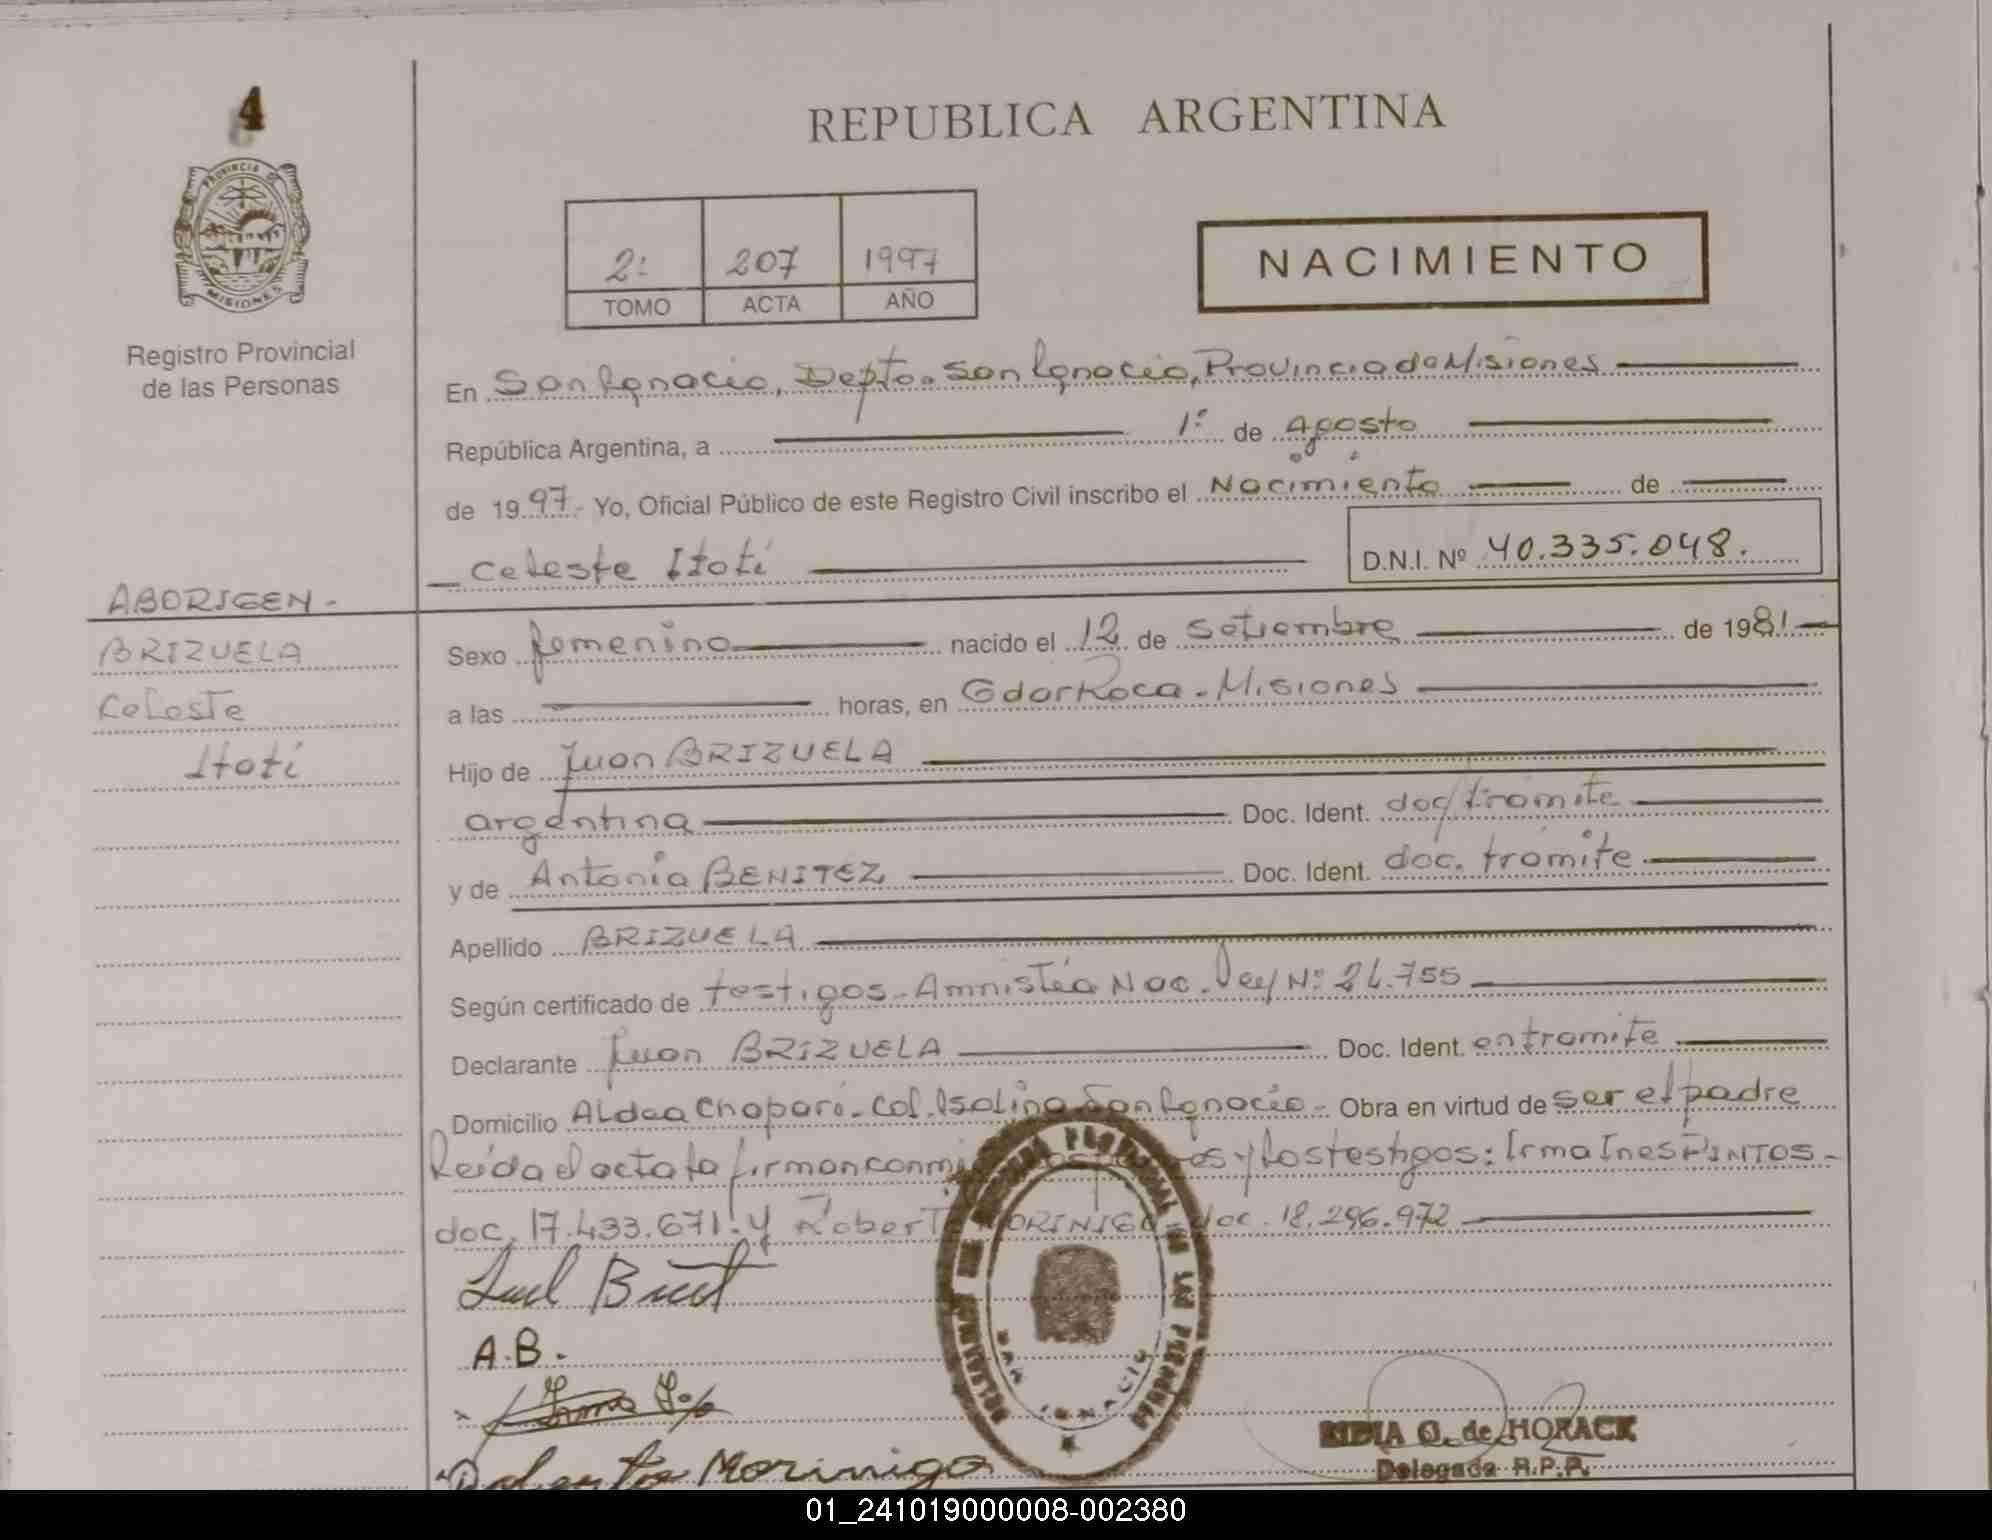 4
PROVINCIA DE
MISIONES
Registro Provincial
de las Personas
REPUBLICA ARGENTINA
2: 207 1997
TOMO ACTA AÑO
NACIMIENTO
En San Ignacio, Depto. San Ignacio, Provincia de Misiones
República Argentina, a 1º de Agosto
de 1997.- Yo, Oficial Público de este Registro Civil inscribo el Nacimiento de
Celeste Itatí
D.N.I. Nº 40.335.048.
ABORIGEN-
BRIZUELA
Celeste
Itatí
Sexo femenino nacido el 12 de Setiembre de 1981
a las horas, en Gdor Roca - Misiones
Hijo de Juan BRIZUELA
argentina Doc. Ident. doc/ tramite
y de Antonia BENITEZ Doc. Ident. doc. tramite
Apellido BRIZUELA
Según certificado de testigos - Amnistía Nac. Nº 24.755
Declarante Juan BRIZUELA Doc. Ident. en tramite
Domicilio Aldea Chaparí - Col. Isolina San Ignacio - Obra en virtud de ser el padre
Leída el acta la firman conmigo y los testigos: Irma Ines PINTOS -
doc. 17.433.671 y Roberto MORINIGO - doc. 18.296.972
A.B.
Roberto Morinigo
SAN IGNACIO
O. de HORACK
Delegada R.P.P.
01_241019000008-002380